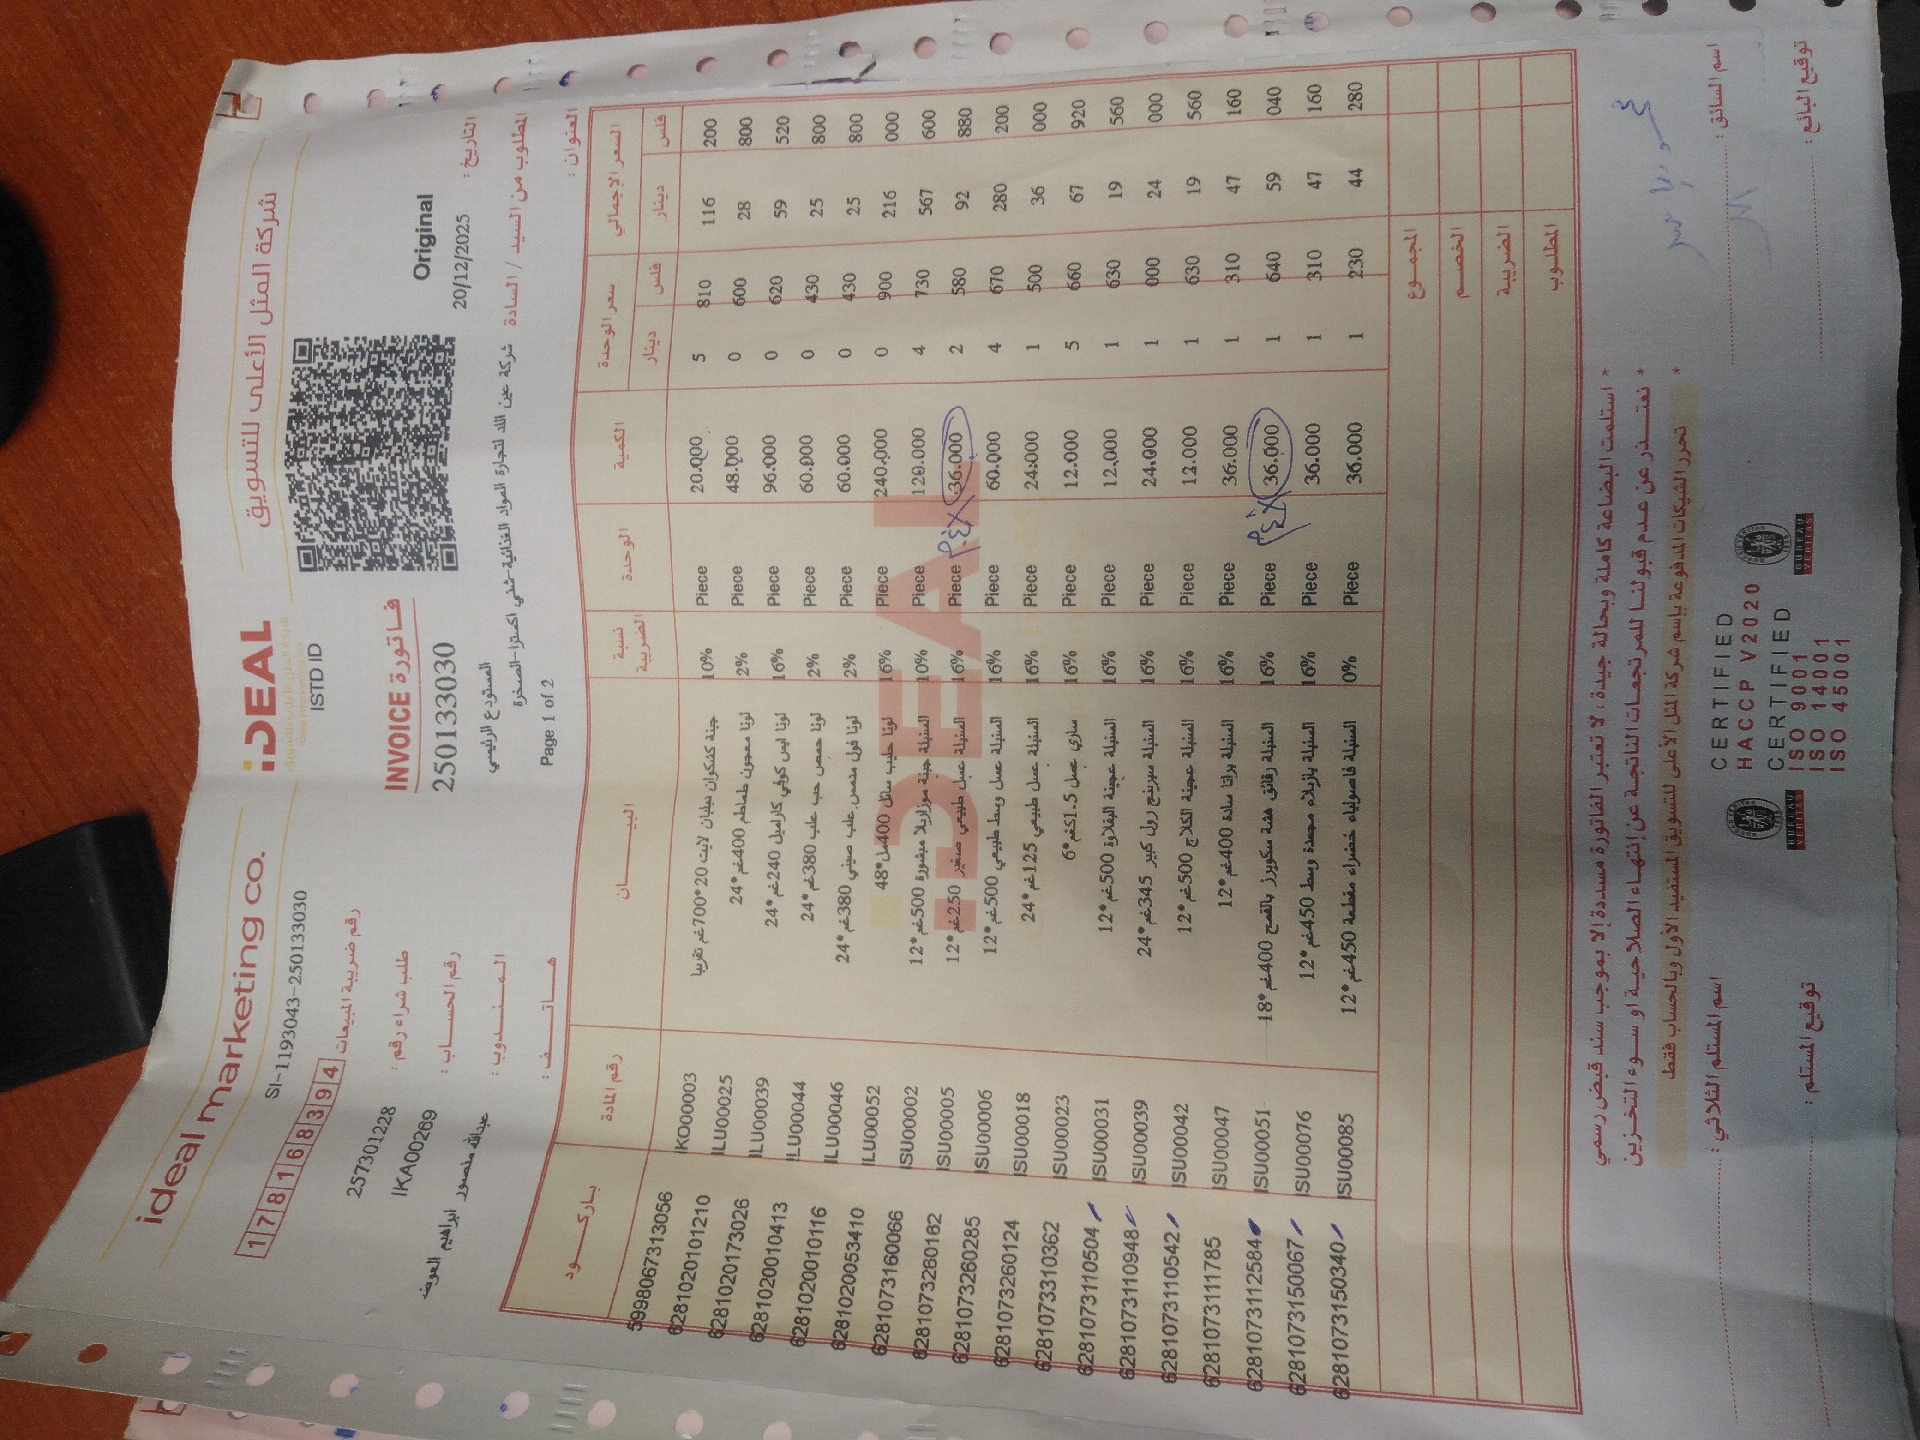 ideal marketing co.
iDEAL
شركة المثل الأعلى للتسويق
SI-1193043-250133030
ISTD ID
178168394 رقم ضريبة المبيعات
257301228 طلب شراء رقم :
IKA00269 رقم الحساب :
عبدالله منصور ابراهيم العوض المندوب :
هاتف :
INVOICE فاتورة
250133030
المستودع الرئيسي
Page 1 of 2
Original
20/12/2025 التاريخ :
المطلوب من السيد / السادة
العنوان :
باركود رقم المادة البيان نسبة الضريبة الوحدة الكمية سعر الوحدة السعر الإجمالي
دينار فلس دينار فلس
5998067313056 IKO00003 جبنة كشكوان دبلبان لايت 20*700غم تقريبا 10% Piece 20.000 5 810 116 200
6281020101210 ILU00025 لونا معجون طماطم 400غم*24 2% Piece 48.000 0 600 28 800
6281020173026 ILU00039 لونا ايس كوفي كاراميل 240غم*24 16% Piece 96.000 0 620 59 520
6281020010413 ILU00044 لونا حمص حب علب 380غم*24 2% Piece 60.000 0 430 25 800
6281020010116 ILU00046 لونا فول مدمس علب صيني 380غم*24 2% Piece 60.000 0 430 25 800
6281020053410 ILU00052 لونا حليب سائل 400مل*48 16% Piece 240.000 0 900 216 000
6281073160066 ISU00002 السنبلة جبنة موزاريلا مبشورة 500غم*12 10% Piece 120.000 4 730 567 600
6281073260162 ISU00005 السنبلة عسل طبيعي صغير 250غم*12 16% Piece 36.000 2 580 92 880
6281073260285 ISU00006 السنبلة عسل وسط طبيعي 500غم*12 16% Piece 60.000 4 670 280 200
6281073260124 ISU00018 السنبلة عسل طبيعي 125غم*24 16% Piece 24.000 1 500 36 000
6281073310362 ISU00023 ساري عسل 1.5كغم*6 16% Piece 12.000 5 660 67 920
6281073110504 ISU00031 السنبلة عجينة البقلاوة 500غم*12 16% Piece 12.000 1 630 19 560
6281073110948 ISU00039 السنبلة سبرينج رول كبير 345غم*24 16% Piece 24.000 1 000 24 000
6281073110542 ISU00042 السنبلة عجينة الكلاج 500غم*12 16% Piece 12.000 1 630 19 560
6281073111785 ISU00047 السنبلة براتا سادة 400غم*12 16% Piece 36.000 1 310 47 160
6281073112584 ISU00051 السنبلة رقائق هشة سكويرز بالقمح 400غم*18 16% Piece 36.000 1 640 59 040
6281073150067 ISU00076 السنبلة بازيلاء مجمدة وسط 450غم*12 16% Piece 36.000 1 310 47 160
6281073150340 ISU00085 السنبلة فاصولياء خضراء مقطعة 450غم*12 0% Piece 36.000 1 230 44 280
المجموع
الخصم
الضريبة
المطلوب
* استلمت البضاعة كاملة وبحالة جيدة، لا تعتبر الفاتورة مسددة إلا بموجب سند قبض رسمي
* نعتذر عن عدم قبولنا للمرتجعات الناتجة عن إنتهاء الصلاحية او سوء التخزين
* تحرر الشيكات المدفوعة بإسم شركة المثل الأعلى للتسويق المستفيد الأول وبالحساب فقط
اسم السائق :
توقيع البائع :
اسم المستلم الثلاثي :
توقيع المستلم :
CERTIFIED
HACCP V2020
CERTIFIED
ISO 9001
ISO 14001
ISO 45001
BUREAU VERITAS
BUREAU VERITAS